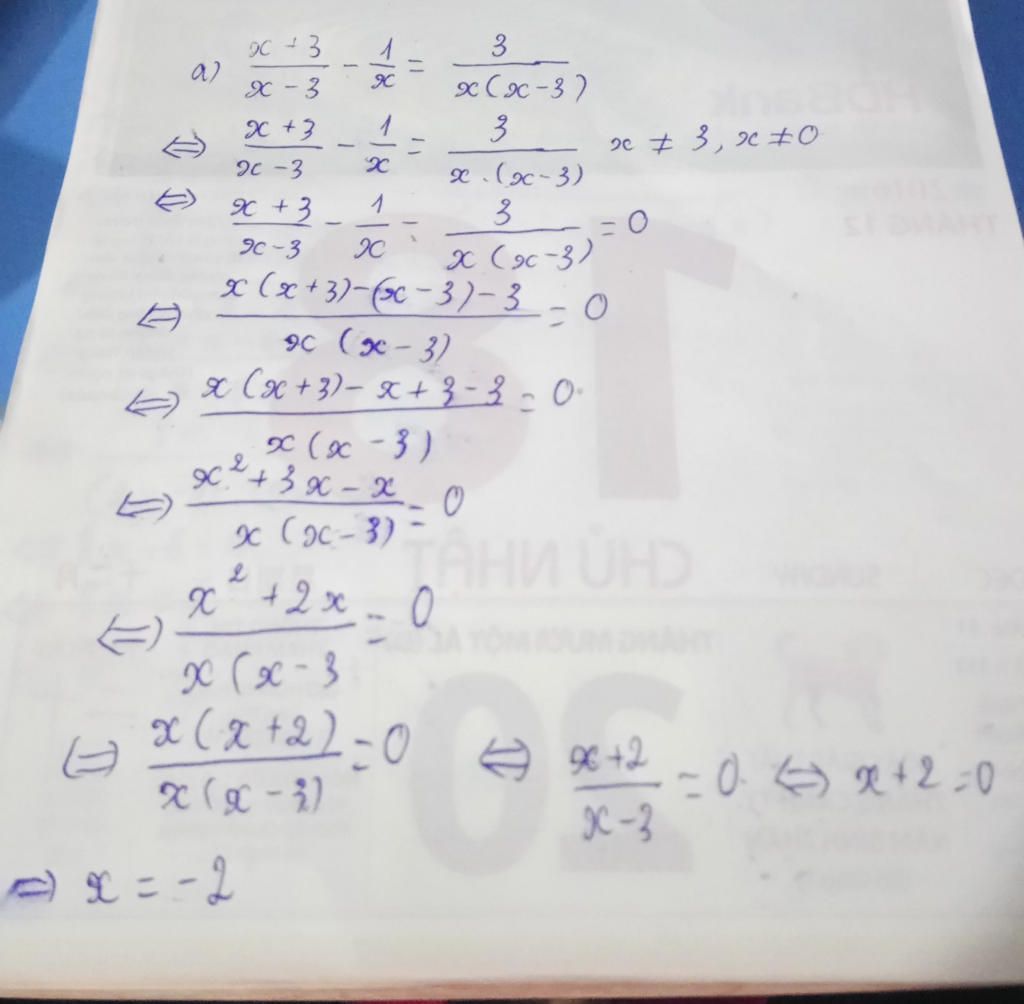 a) \frac{x+3}{x-3} - \frac{1}{x} = \frac{3}{x(x-3)}
⇔ \frac{x+3}{x-3} - \frac{1}{x} = \frac{3}{x.(x-3)} x ≠ 3, x ≠ 0
⇔ \frac{x+3}{x-3} - \frac{1}{x} - \frac{3}{x(x-3)} = 0
⇔ \frac{x(x+3)-(x-3)-3}{x(x-3)} = 0
⇔ \frac{x(x+3)-x+3-3}{x(x-3)} = 0
⇔ \frac{x^2+3x-x}{x(x-3)} = 0
⇔ \frac{x^2+2x}{x(x-3} = 0
⇔ \frac{x(x+2)}{x(x-3)} = 0 ⇔ \frac{x+2}{x-3} = 0 ⇔ x+2=0
⇒ x = -2
HDBank
THÁNG 12
18
CHỦ NHẬT
SUNDAY
DEC
20